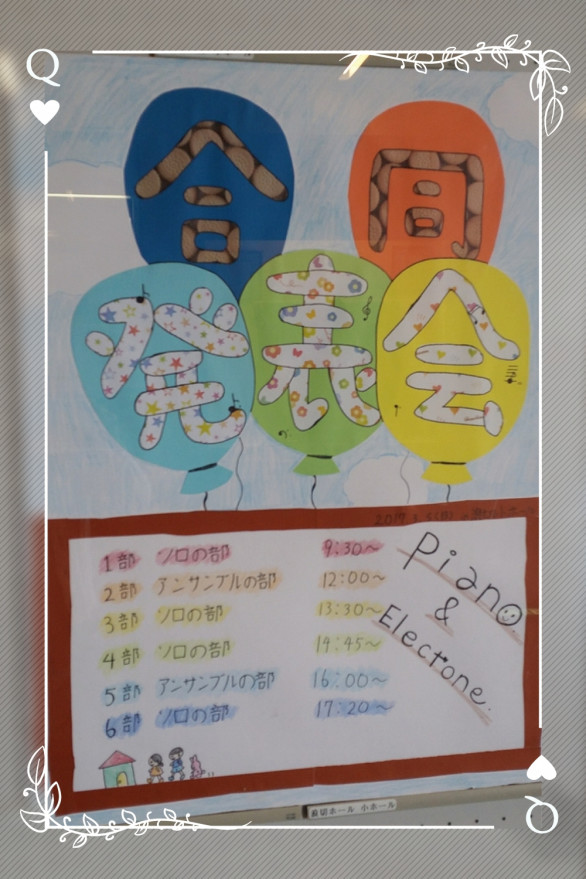 Q
合同
発表会
1部 ソロの部 9:30〜
2部 アンサンブルの部 12:00〜
3部 ソロの部 13:30〜
4部 ソロの部 14:45〜
5部 アンサンブルの部 16:00〜
6部 ソロの部 17:20〜
Piano
&
Electone.
小ホール
Q